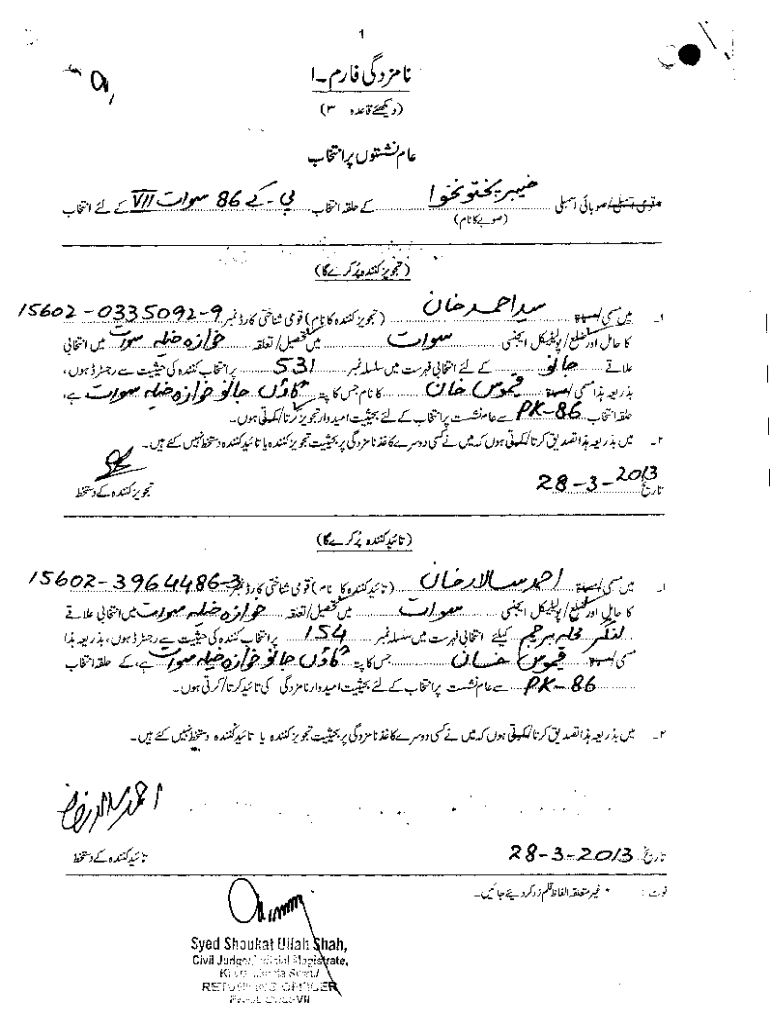 1
نامزدگی فارم۔ا
(دیکھئے قاعدہ ۳)
عام نشستوں پر انتخاب
قومی اسمبلی/صوبائی اسمبلی خیبر پختونخوا کے حلقہ انتخاب پی۔کے 86 سوات VII کے لئے انتخاب
(صوبے کا نام)
(تجویز کنندہ پُر کرے گا)
۱۔ میں مسمی/مسماۃ سید احمد خان (تجویز کنندہ کا نام) قومی شناختی کارڈ نمبر 15602-0335092-9
کا حامل اور ضلع/پولیٹیکل ایجنسی سوات میں تحصیل/تعلقہ خوازہ خیلہ سوات میں انتخابی
علاقے جانو کے لئے انتخابی فہرست میں سلسلہ نمبر 531 پر انتخاب کنندہ کی حیثیت سے رجسٹرڈ ہوں،
بذریعہ ہذا مسمی/مسماۃ قیموس خان کا نام جس کا پتہ گاؤں جانو خوازہ خیلہ سوات ہے،
حلقہ انتخاب PK-86 سے عام نشست پر انتخاب کے لئے بحیثیت امیدوار تجویز کرتا/کرتی ہوں۔
۲۔ میں بذریعہ ہذا تصدیق کرتا/کرتی ہوں کہ میں نے کسی دوسرے کاغذ نامزدگی پر بحیثیت تجویز کنندہ یا تائید کنندہ دستخط نہیں کئے ہیں۔
تاریخ 28-3-2013
تجویز کنندہ کے دستخط
(تائید کنندہ پُر کرے گا)
۱۔ میں مسمی/مسماۃ احمد سالار خان (تائید کنندہ کا نام) قومی شناختی کارڈ نمبر 15602-3964486-3
کا حامل اور ضلع/پولیٹیکل ایجنسی سوات میں تحصیل/تعلقہ خوازہ خیلہ سوات میں انتخابی علاقے
لنگر محلہ کیلئے انتخابی فہرست میں سلسلہ نمبر 154 پر انتخاب کنندہ کی حیثیت سے رجسٹرڈ ہوں، بذریعہ ہذا
مسمی/مسماۃ قیموس خان جس کا پتہ گاؤں جانو خوازہ خیلہ سوات ہے، کے حلقہ انتخاب
PK-86 سے عام نشست پر انتخاب کے لئے بحیثیت امیدوار نامزدگی کی تائید کرتا/کرتی ہوں۔
۲۔ میں بذریعہ ہذا تصدیق کرتا/کرتی ہوں کہ میں نے کسی دوسرے کاغذ نامزدگی پر بحیثیت تجویز کنندہ یا تائید کنندہ دستخط نہیں کئے ہیں۔
تاریخ 28-3-2013
تائید کنندہ کے دستخط
نوٹ: * غیر متعلقہ الفاظ قلم زد کر دیئے جائیں۔
Syed Shaukat Ullah Shah,
Civil Judge/Judicial Magistrate,
RETURNING OFFICER